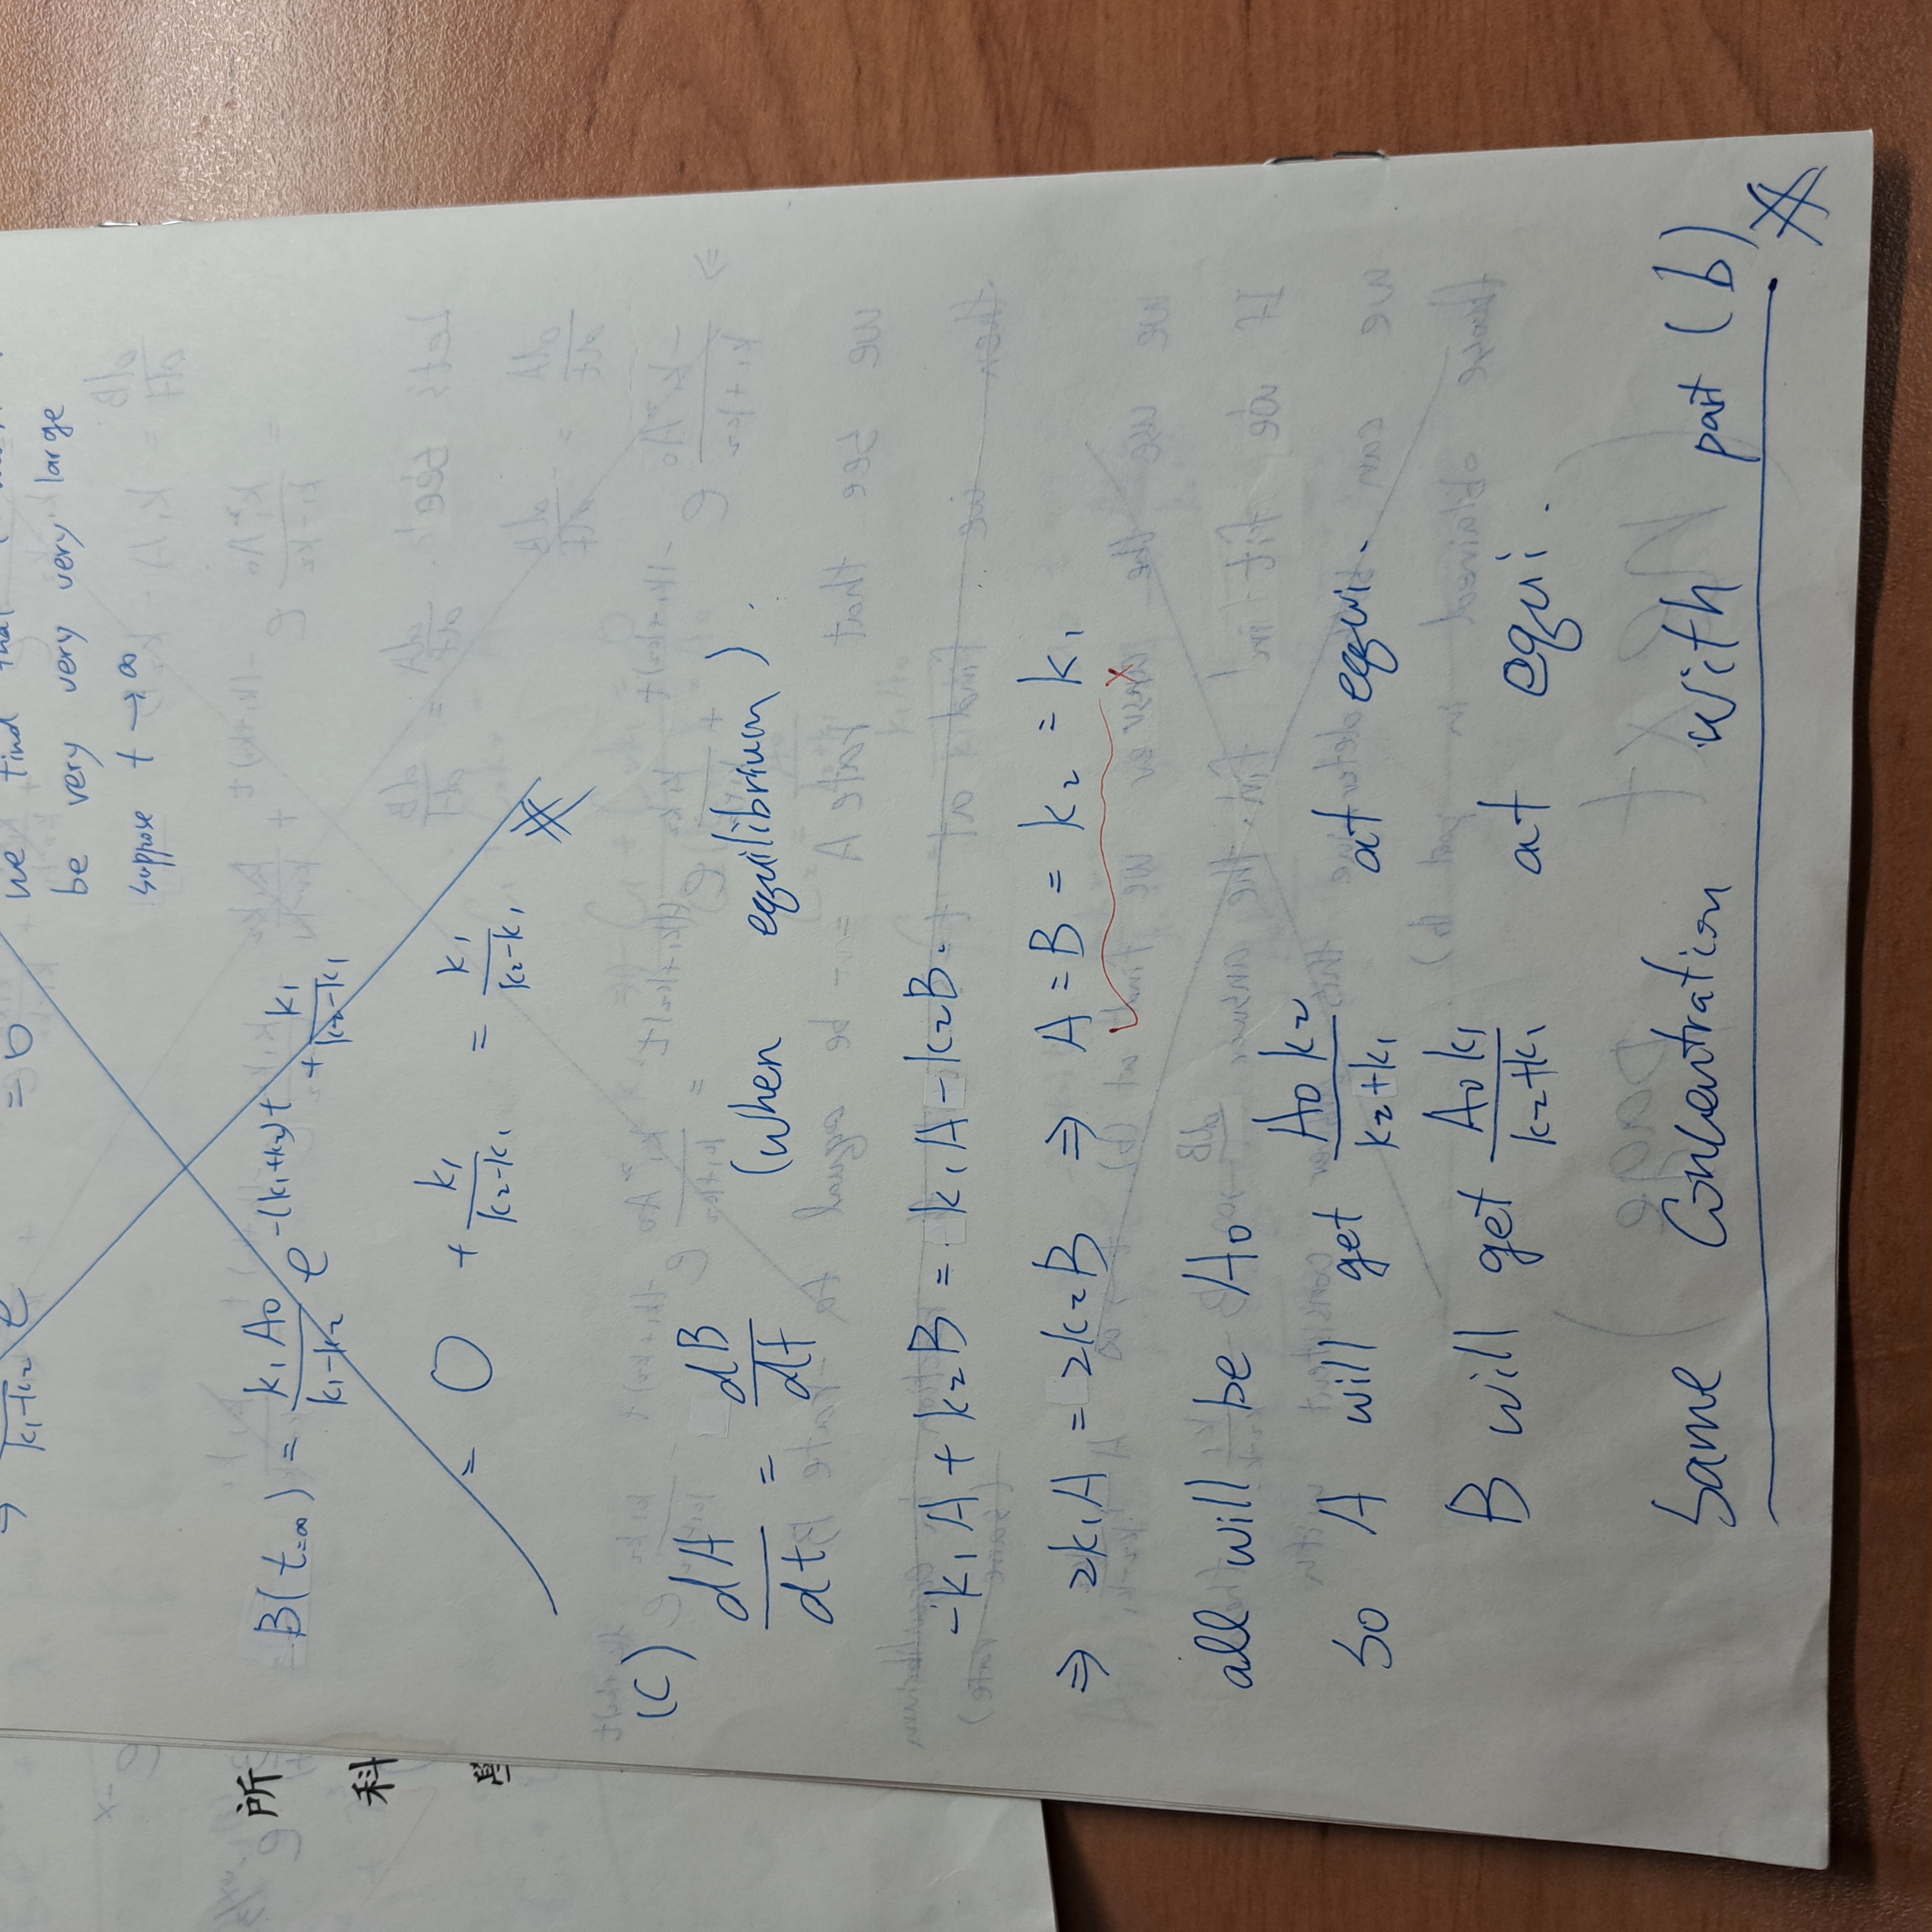 所
科
we find that
be very very very large
suppose t → ∞
B(t=∞) = k₁A₀/(k₁-k₂) e^-(k₁+k₂)t + k₁/(k₂-k₁)
= 0 + k₁/(k₂-k₁) = k₁/(k₂-k₁)
(C) dA/dt = dB/dt (when equilibrium).
-k₁A + k₂B = k₁A - k₂B.
⇒ 2k₁A = 2k₂B ⇒ A = B = k₂ = k₁
all will be A₀
so A will get A₀k₂/(k₂+k₁) at equi.
B will get A₀k₁/(k₂+k₁) at equi.
Same Concentration with part (b)